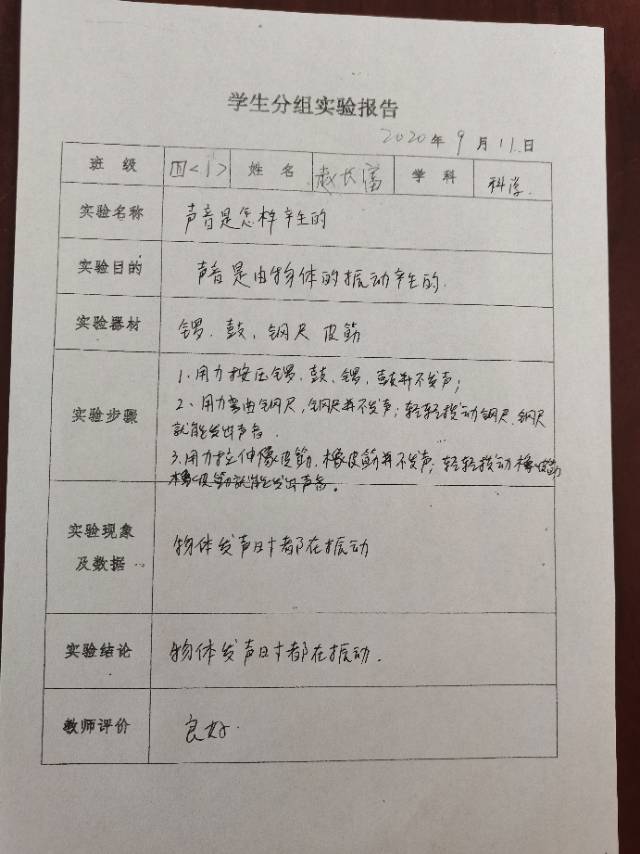 学生分组实验报告
2020年9月11日
班级 四<1> 姓名 赵长富 学科 科学.
实验名称 声音是怎样产生的
实验目的 声音是由物体的振动产生的.
实验器材 锣.鼓.钢尺 皮筋
实验步骤 1、用力按压锣.鼓、锣、鼓并不发声;
2、用力弯曲钢尺,钢尺并不发声;轻轻拨动钢尺.钢尺
就能发出声音.
3.用力拉伸橡皮筋.橡皮筋并不发声;轻轻拨动橡皮筋
橡皮筋就能发出声音。
实验现象
及数据 物体发声时都在振动
实验结论 物体发声时都在振动.
教师评价 良好.